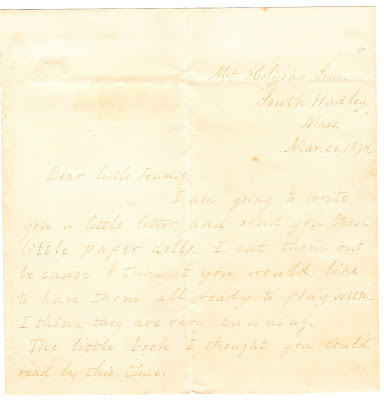 Mt. Holyoke Sem.
South Hadley,
Mass.
Mar. 26. 187
Dear little Jennie,
I am going to write
you a little letter, and send you these
little paper dolls. I cut them out
because I thought you would like
to have them all ready to play with.
I think they are very cunning.
The little book I thought you could
read by this time.